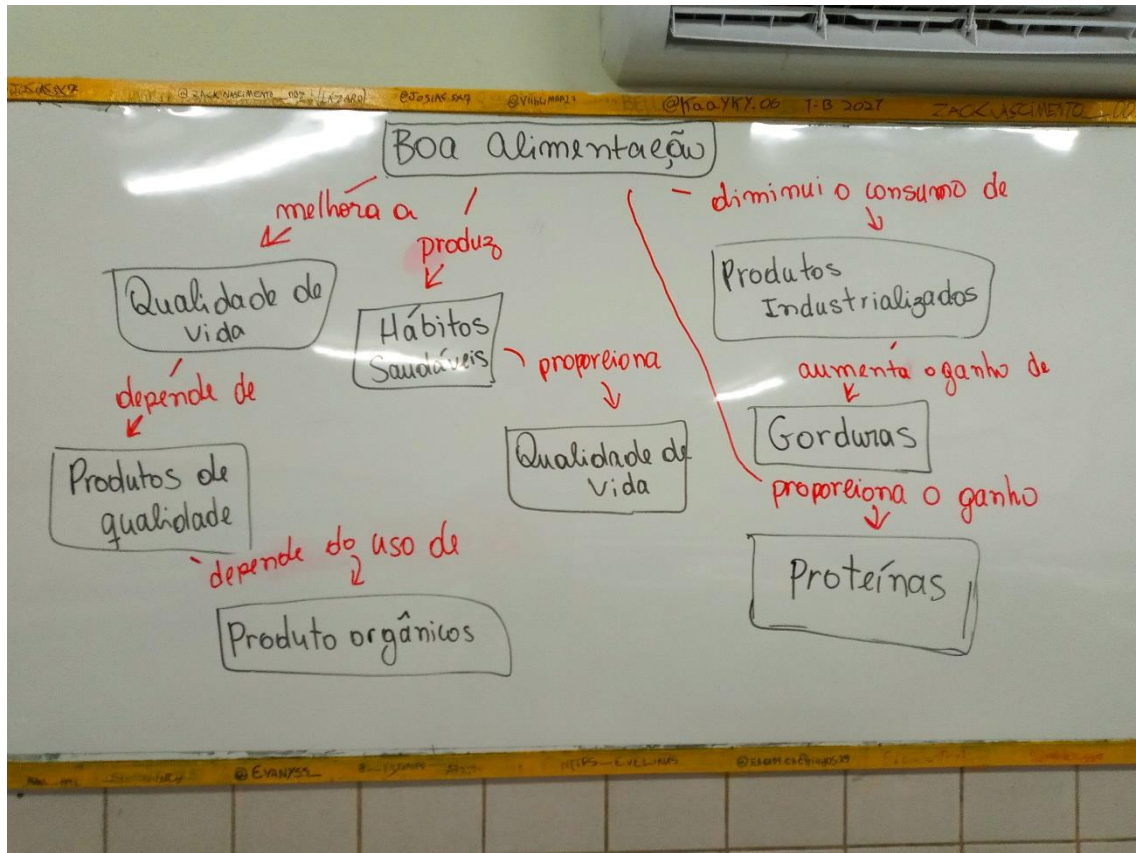 @JOSIAS.SX7
@VIIBLIMA827
@KaaYKY.06 1-B 2027
Boa alimentação
melhora a
produz
diminui o consumo de
Qualidade de
vida
Hábitos
Saudáveis
Produtos
Industrializados
depende de
proporciona
aumenta o ganho de
Produtos de
qualidade
Qualidade de
vida
Gorduras
proporciona o ganho
depende do uso de
Proteínas
Produto orgânicos
@EVANYSS_